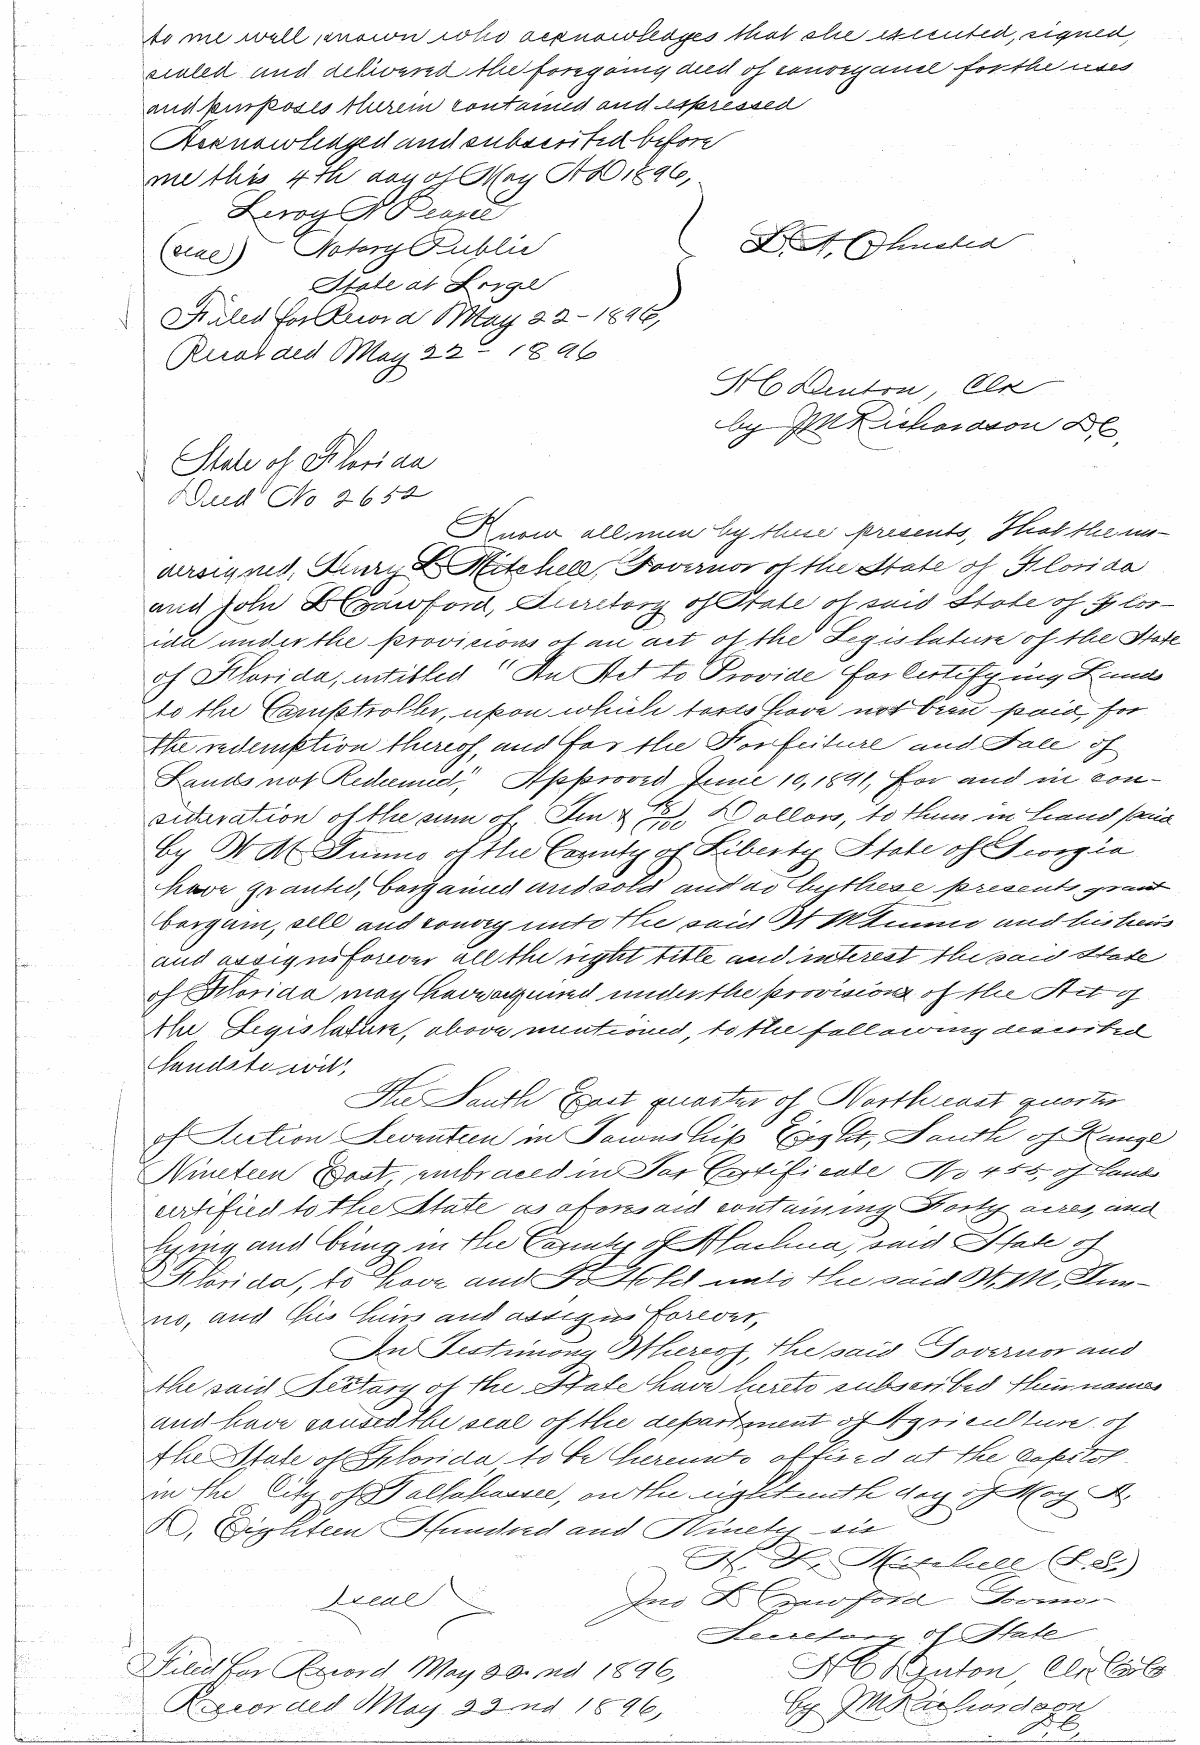 to me well known who acknowledges that she executed, signed,
sealed and delivered the foregoing deed of conveyance for the uses
and purposes therein contained and expressed
Acknowledged and subscribed before
me this 4th day of May AD 1896,
Leroy
(seal) Notary Public
L. A. Ohmsted
State at Large
Filed for Record May 22 - 1896,
Recorded May 22 - 1896
H C Denton, Clk
by J M Richardson D.C.
State of Florida
Deed No 2652
Know all men by these presents, That the un-
dersigned, Henry L Mitchell, Governor of the State of Florida
and John L Crawford, Secretary of State of said State of Flor-
ida under the provisions of an act of the Legislature of the State
of Florida, entitled "An Act to Provide for Certifying Lands
to the Comptroller, upon which taxes have not been paid, for
the redemption thereof, and for the Forfeiture and Sale of
Lands not Redeemed," Approved June 10, 1891, for and in con-
sideration of the sum of Ten & /100 Dollars, to them in hand paid
by W M Tunno of the County of Liberty State of Georgia
have granted, bargained and sold and do by these presents grant
bargain, sell and convey unto the said W M Tunno and his heirs
and assigns forever all the right title and interest the said State
of Florida may have acquired under the provisions of the Act of
the Legislature, above mentioned, to the following described
lands to wit;
The South East quarter of North east quarter
of Section Seventeen in Township Eight, South of Range
Nineteen East, embraced in Tax Certificate No 455, of lands
certified to the State as aforesaid containing Forty acres, and
lying and being in the County of Alachua, said State of
Florida, to have and To Hold unto the said W. M. Tun-
no, and his heirs and assigns forever,
In Testimony Whereof, the said Governor and
the said Sectary of the State have hereto subscribed their names
and have caused the seal of the department of Agriculture of
the State of Florida, to be hereunto affixed at the Capitol
in the City of Tallahassee, on the eighteenth day of May A.
D, Eighteen Hundred and Ninety six
H. L. Mitchell (L.S.)
seal
Jno L Crawford Governor
Secretary of State
Filed for Record May 22nd 1896,
H C Denton, Clk
Recorded May 22nd 1896,
by J M Richardson
D.C.